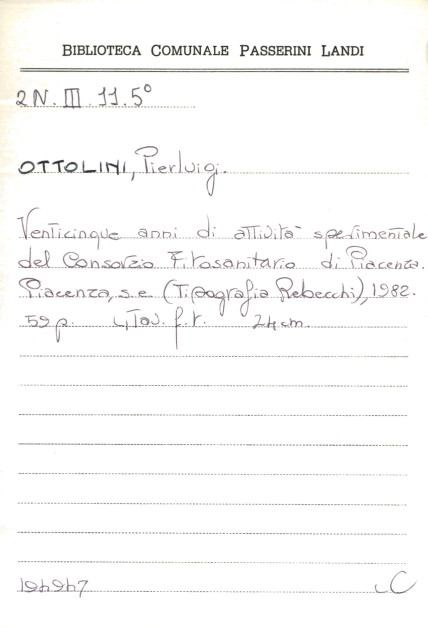 BIBLIOTECA COMUNALE PASSERINI LANDI
2N. III. 11.5°
OTTOLINI, Pierluigi.
Venticinque anni di attività sperimentale
del Consorzio Fitosanitario di Piacenza.
Piacenza, s.e. (Tipografia Rebecchi), 1982.
59 p. 4 Tav. f.t. 24 cm.
194947